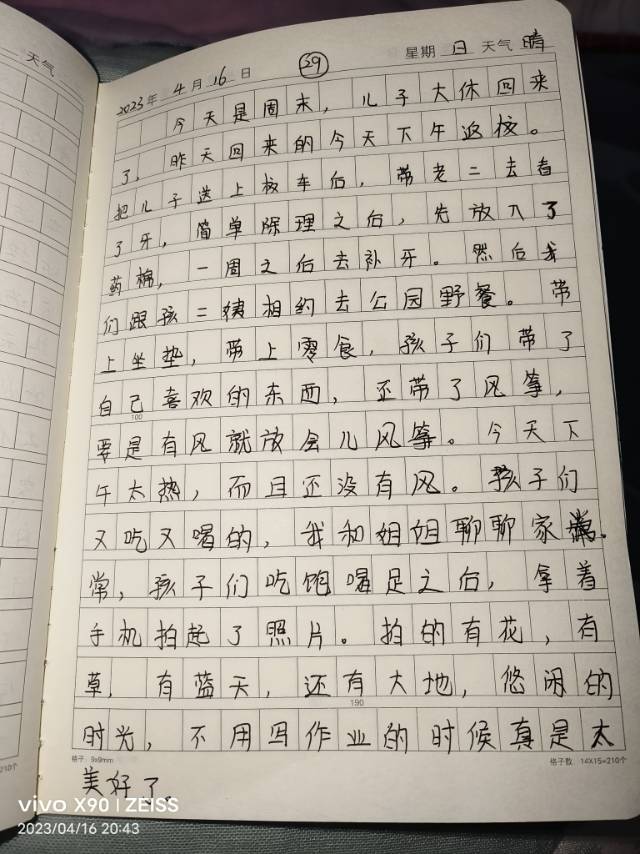 天气
2023年 4月 16日 39 星期 日 天气 晴
今天是周末，儿子大休回来
了，昨天回来的今天下午返校。
把儿子送上校车后，带老二去看
了牙，简单除理之后，先放入了
药棉，一周之后去补牙。然后我
们跟孩二姨相约去公园野餐。带
上坐垫，带上零食，孩子们带了
自己喜欢的东西，还带了风筝，
100
要是有风就放会儿风筝。今天下
午太热，而且还没有风。孩子们
又吃又喝的，我和姐姐聊聊家常。
常，孩子们吃饱喝足之后，拿着
手机拍起了照片。拍的有花，有
草，有蓝天，还有大地，悠闲的
190
时光，不用写作业的时候真是太
格子：9x9mm 格子数：14X15=210个
=210个
美好了。
vivo X90 | ZEISS
2023/04/16 20:43